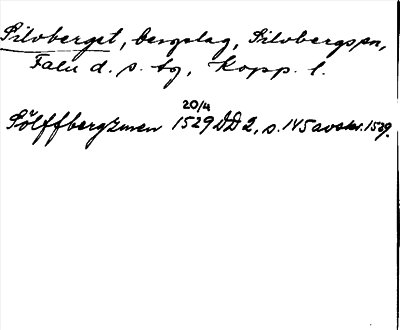 Silvberget, bergslag, Silvbergs sn,
Falu d. s. tg, Kopp. l.
20/4
Sölffbergzmen 1529 DD2, s. 145 avskr. 1539.